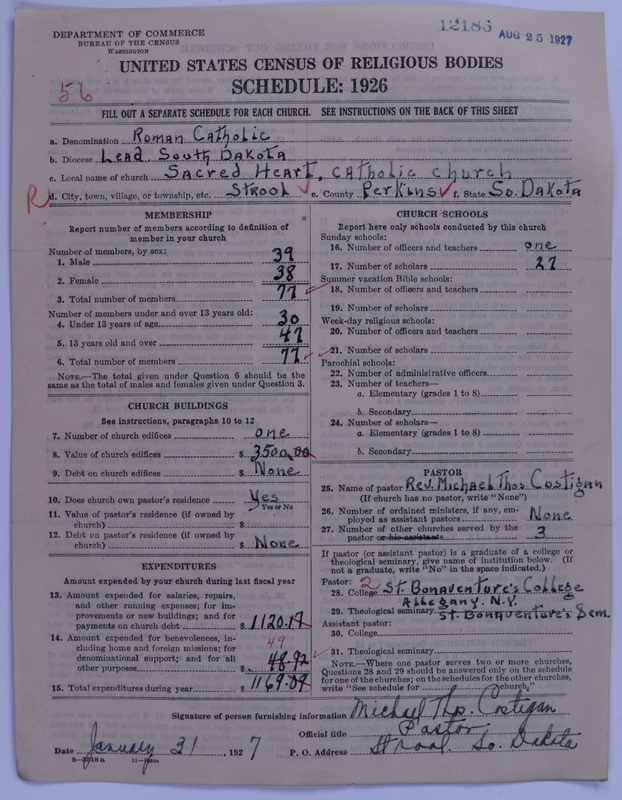 12186 AUG 25 1927
DEPARTMENT OF COMMERCE
BUREAU OF THE CENSUS
WASHINGTON
UNITED STATES CENSUS OF RELIGIOUS BODIES
SCHEDULE: 1926
56
FILL OUT A SEPARATE SCHEDULE FOR EACH CHURCH. SEE INSTRUCTIONS ON THE BACK OF THIS SHEET
a. Denomination Roman Catholic
b. Diocese Lead. South Dakota
c. Local name of church Sacred Heart, Catholic Church
R d. City, town, village, or township, etc. Strool e. County Perkins f. State So. Dakota
MEMBERSHIP
Report number of members according to definition of
member in your church
Number of members, by sex:
1. Male 39
2. Female 38
3. Total number of members 77
Number of members under and over 13 years old:
4. Under 13 years of age 30
5. 13 years old and over 47
6. Total number of members 77
NOTE.—The total given under Question 6 should be the
same as the total of males and females given under Question 3.
CHURCH BUILDINGS
See instructions, paragraphs 10 to 12
7. Number of church edifices one
8. Value of church edifices $ 3500.00
9. Debt on church edifices $ None
10. Does church own pastor's residence Yes
Yes or No
11. Value of pastor's residence (if owned by
church) $
12. Debt on pastor's residence (if owned by
church) $ None
EXPENDITURES
Amount expended by your church during last fiscal year
13. Amount expended for salaries, repairs,
and other running expenses; for im-
provements or new buildings; and for
payments on church debt $ 1120.17
14. Amount expended for benevolences, in-
cluding home and foreign missions; for
denominational support; and for all
other purposes $ 48.92
49
15. Total expenditures during year $ 1169.09
CHURCH SCHOOLS
Report here only schools conducted by this church
Sunday schools:
16. Number of officers and teachers one
17. Number of scholars 27
Summer vacation Bible schools:
18. Number of officers and teachers
19. Number of scholars
Week-day religious schools:
20. Number of officers and teachers
21. Number of scholars
Parochial schools:
22. Number of administrative officers
23. Number of teachers—
a. Elementary (grades 1 to 8)
b. Secondary
24. Number of scholars—
a. Elementary (grades 1 to 8)
b. Secondary
PASTOR
25. Name of pastor Rev. Michael Thos Costigan
(If church has no pastor, write "None")
26. Number of ordained ministers, if any, em-
ployed as assistant pastors None
27. Number of other churches served by the
pastor or his assistants 3
If pastor (or assistant pastor) is a graduate of a college or
theological seminary, give name of institution below. (If
not a graduate, write "No" in the space indicated.)
Pastor: 2
28. College St. Bonaventure's College
Allegany. N.Y.
29. Theological seminary St. Bonaventure's Sem.
Assistant pastor:
30. College
31. Theological seminary
NOTE.—Where one pastor serves two or more churches,
Questions 28 and 29 should be answered only on the schedule
for one of the churches; on the schedules for the other churches,
write "See schedule for church,"
Signature of person furnishing information Michael Tho. Costigan
Official title Pastor
Date January 31, 1927 P. O. Address Strool. So. Dakota